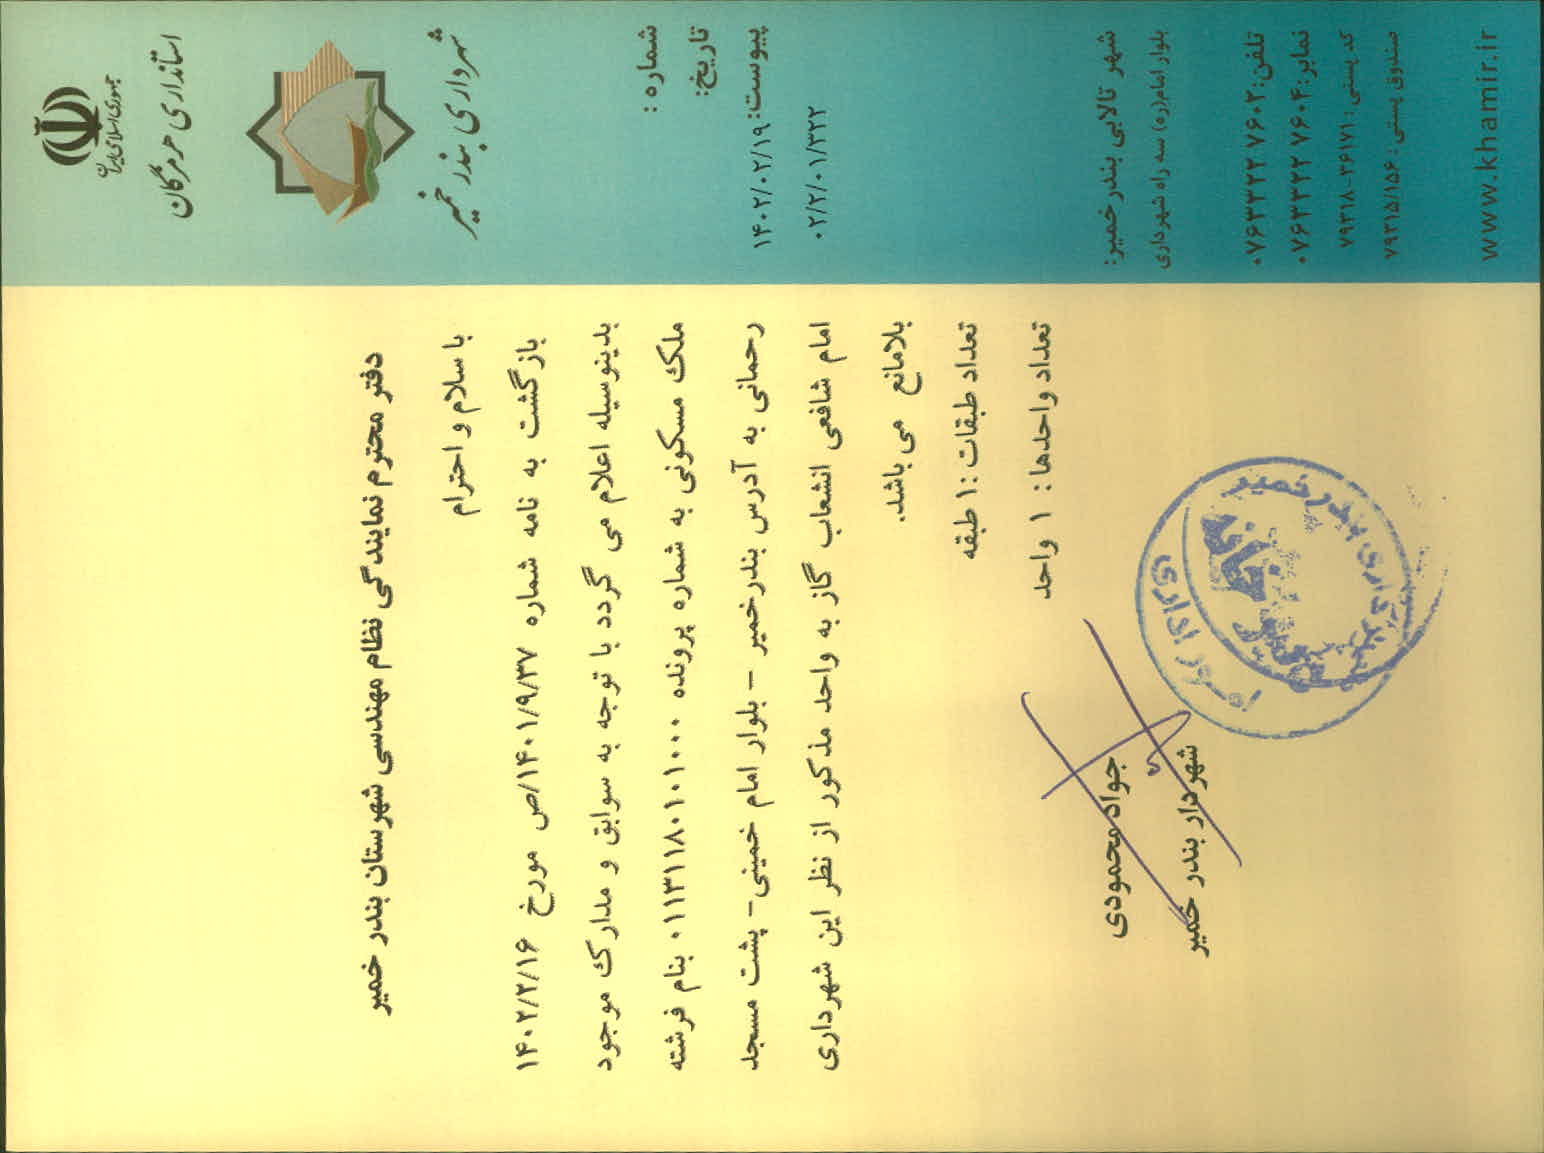 جمهوری اسلامی ایران
استانداری هرمزگان
شهرداری بندر خمیر
شماره :
تاریخ:
پیوست:
۱۴۰۲/۰۲/۱۹
۰۲/۲/۰۱/۳۲۲
شهر تالابی بندر خمیر:
بلوار امام(ره) سه راه شهرداری
تلفن:۰۷۶۳۳۲۲۷۶۰۲
نمابر:۰۷۶۳۳۲۲۷۶۰۴
کد پستی : ۷۹۳۱۸-۳۶۱۷۱
صندوق پستی: ۷۹۳۱۵/۱۵۶
www.khamir.ir
دفتر محترم نمایندگی نظام مهندسی شهرستان بندر خمیر
با سلام و احترام
بازگشت به نامه شماره ۱۴۰۱/۹/۳۷/ص مورخ ۱۴۰۲/۲/۱۶
بدینوسیله اعلام می گردد با توجه به سوابق و مدارک موجود
ملک مسکونی به شماره پرونده ۰۱۱۳۱۱۸۰۱۰۱۰۰۰ بنام فرشته
رحمانی به آدرس بندرخمیر – بلوار امام خمینی- پشت مسجد
امام شافعی انشعاب گاز به واحد مذکور از نظر این شهرداری
بلامانع می باشد.
تعداد طبقات :۱ طبقه
تعداد واحدها : ۱ واحد
جواد محمودی
شهردار بندر خمیر
شهرداری بندر خمیر
امور اداری